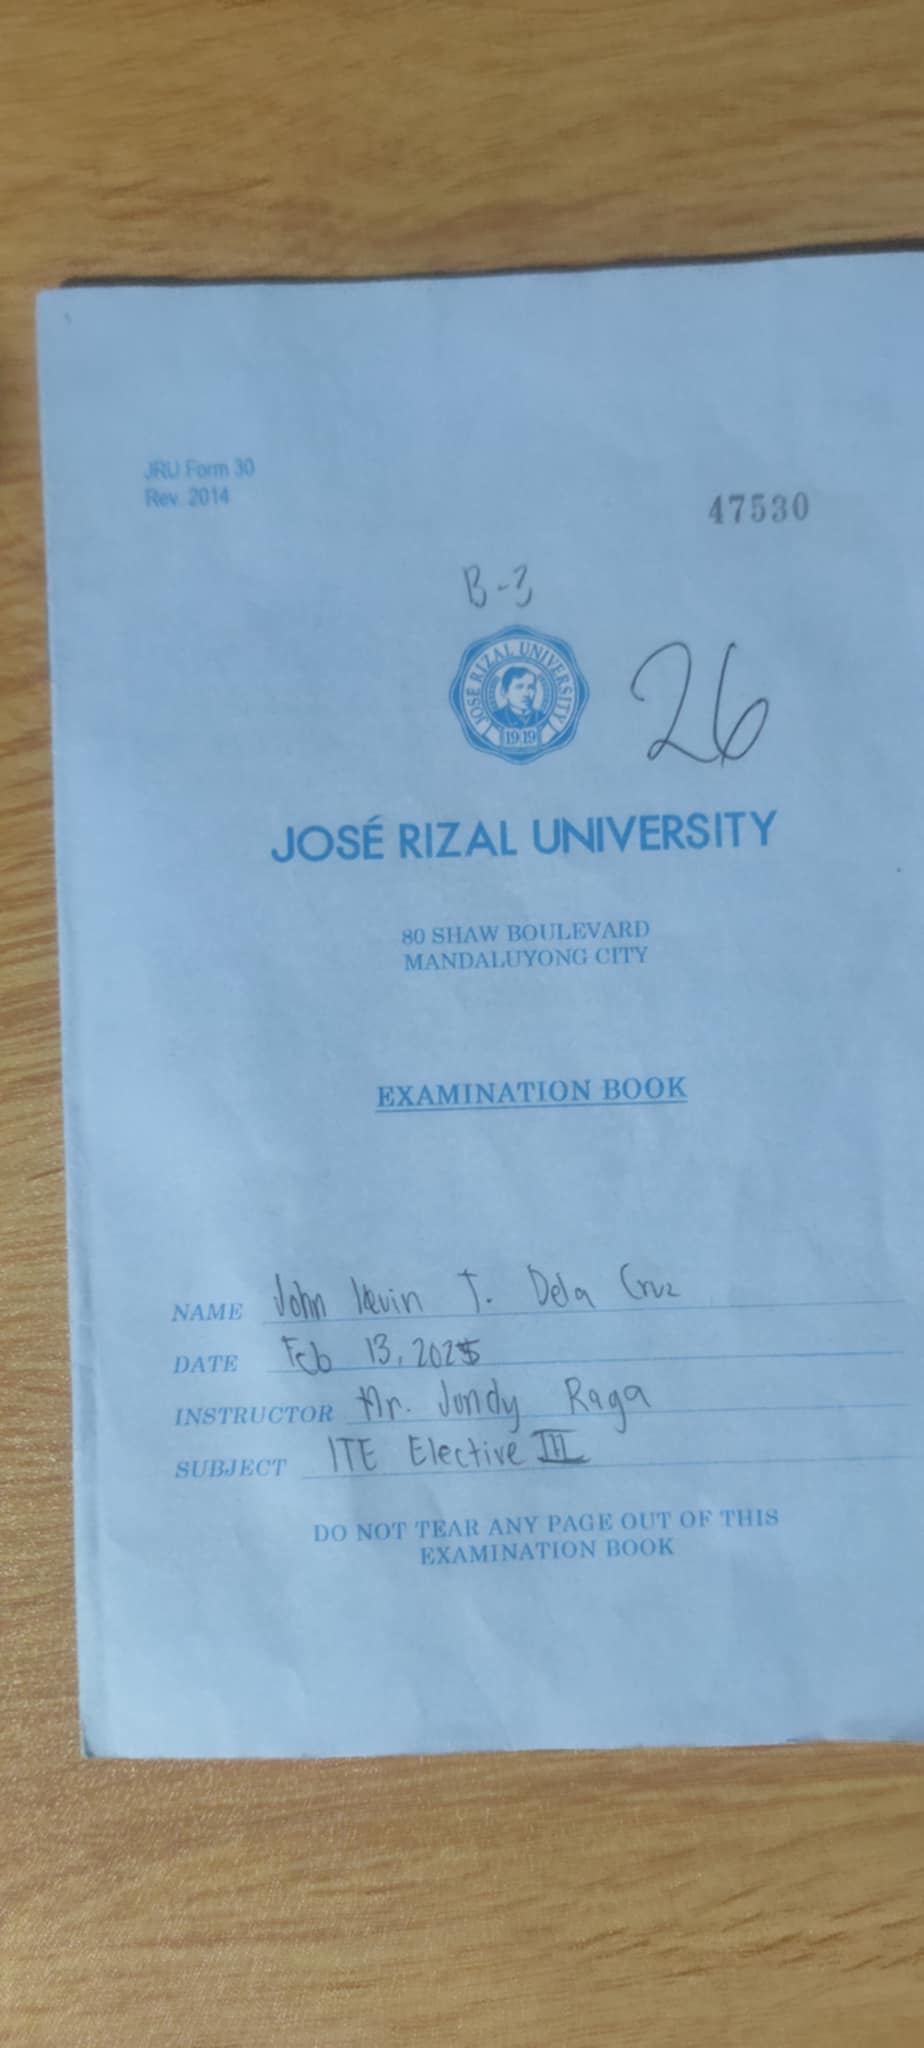 JRU Form 30
Rev. 2014
47530
B-3
JOSÉ RIZAL UNIVERSITY
1919
26
JOSÉ RIZAL UNIVERSITY
80 SHAW BOULEVARD
MANDALUYONG CITY
EXAMINATION BOOK
NAME John Kevin T. Dela Cruz
DATE Feb 13, 2025
INSTRUCTOR Mr. Jundy Raga
SUBJECT ITE Elective III
DO NOT TEAR ANY PAGE OUT OF THIS
EXAMINATION BOOK